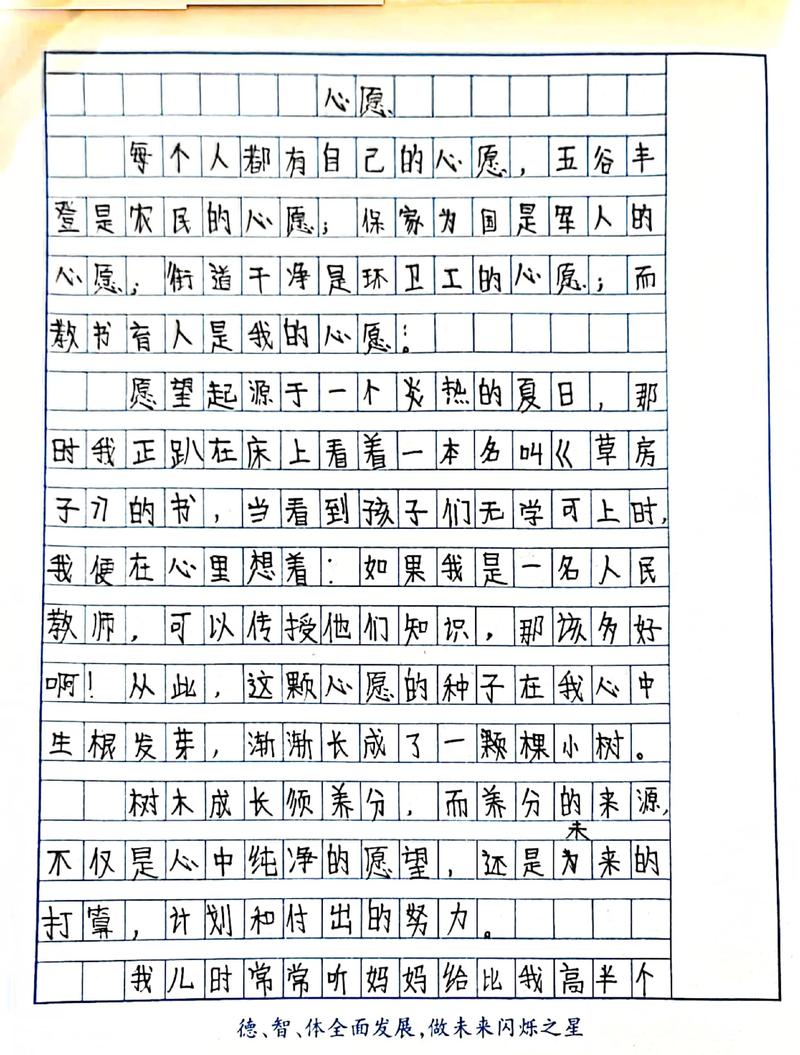 心愿
每个人都有自己的心愿，五谷丰
登是农民的心愿；保家为国是军人的
心愿；街道干净是环卫工的心愿；而
教书育人是我的心愿；
愿望起源于一个炎热的夏日，那
时我正趴在床上看着一本名叫《草房
子》的书，当看到孩子们无学可上时，
我便在心里想着：如果我是一名人民
教师，可以传授他们知识，那该多好
啊！从此，这颗心愿的种子在我心中
生根发芽，渐渐长成了一颗棵小树。
树木成长须养分，而养分的来源，
不仅是心中纯净的愿望，还是为未来的
打算，计划和付出的努力。
我儿时常常听妈妈给比我高半个
德、智、体全面发展，做未来闪烁之星